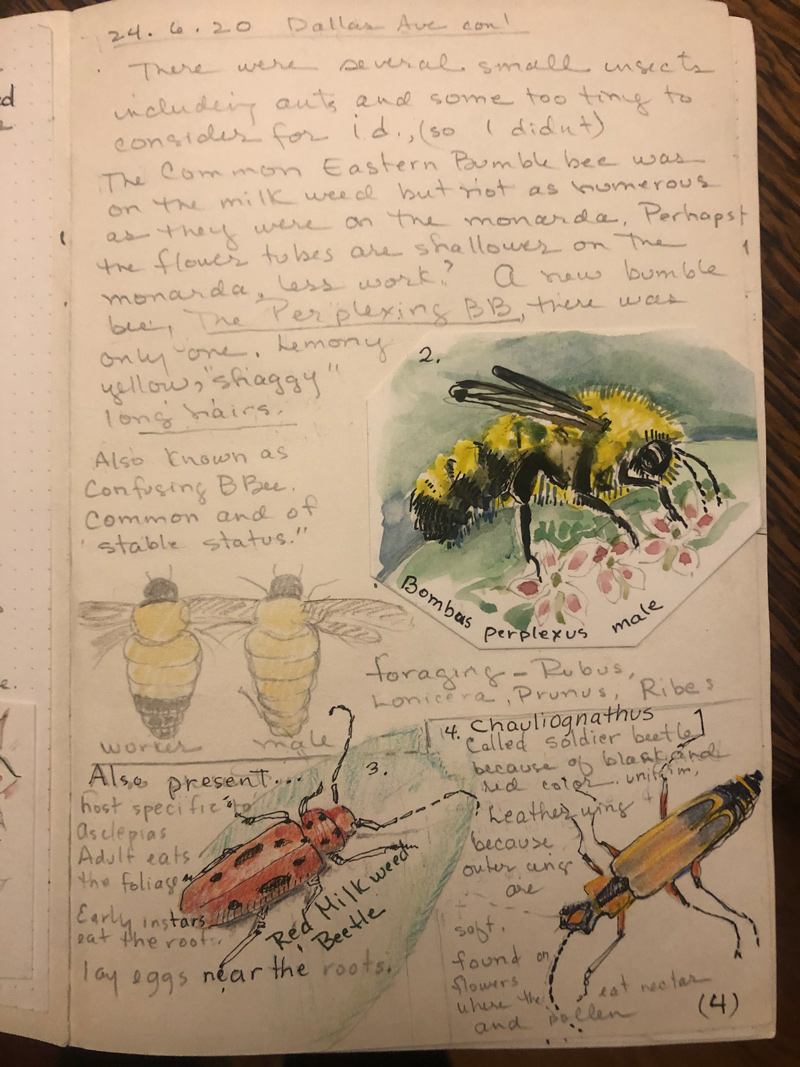 24.6.20 Dallas Ave con'
There were several small insects
including ants and some too tiny to
consider for i.d., (so I didn't)
The Common Eastern Bumble bee was
on the milk weed but not as numerous
as they were on the monarda. Perhaps
the flower tubes are shallower on the
monarda, less work? A new bumble
bee, The Perplexing BB, there was
only one. Lemony
yellow, "shaggy"
long hairs.
2.
Also known as
Confusing BBee.
Common and of
"stable status."
Bombus perplexus male
worker male
foraging - Rubus,
Lonicera, Prunus, Ribes
Also present...
3.
host specific to
Asclepias
Adult eats
the foliage
Early instars
eat the roots.
lay eggs near the roots.
Red Milkweed
Beetle
4. Chauliognathus
Called soldier beetle
because of black and
red color. uniform,
Leather wing
because
outer wings
are
soft.
found on
flowers
where the
eat nectar
and pollen
(4)